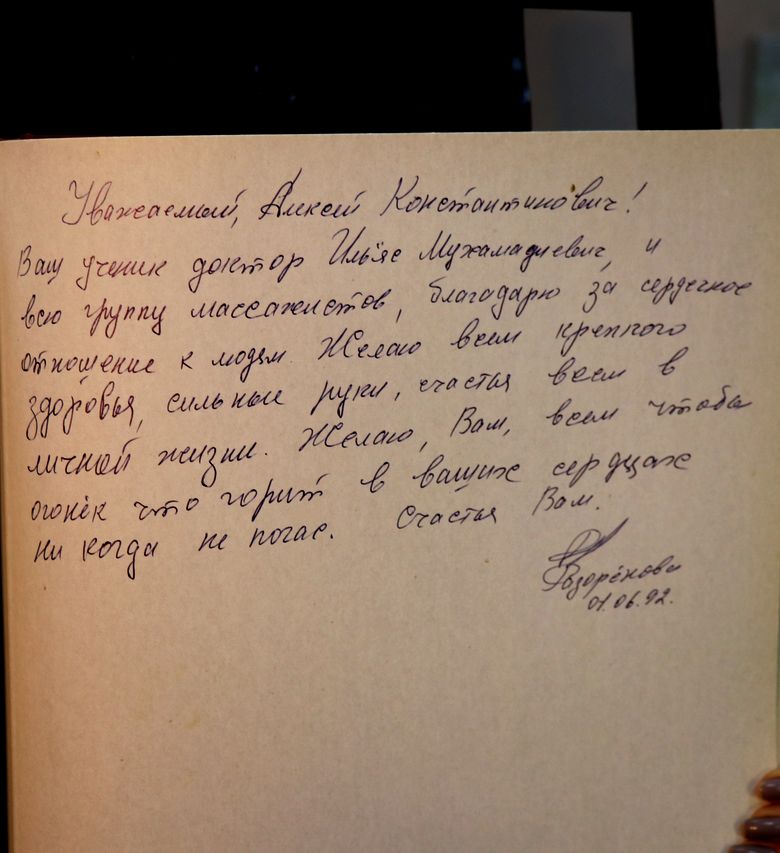 Уважаемый, Алексей Константинович!
Ваш ученик доктор Ильяс Мухамадиевич, и
всю группу массажистов, благодарю за сердечное
отношение к людям. Желаю всем крепкого
здоровья, сильные руки, счастья всем в
личной жизни. Желаю, Вам, всем чтобы
огонёк что горит в ваших сердцах
ни когда не погас. Счастья Вам.
01.06.92.